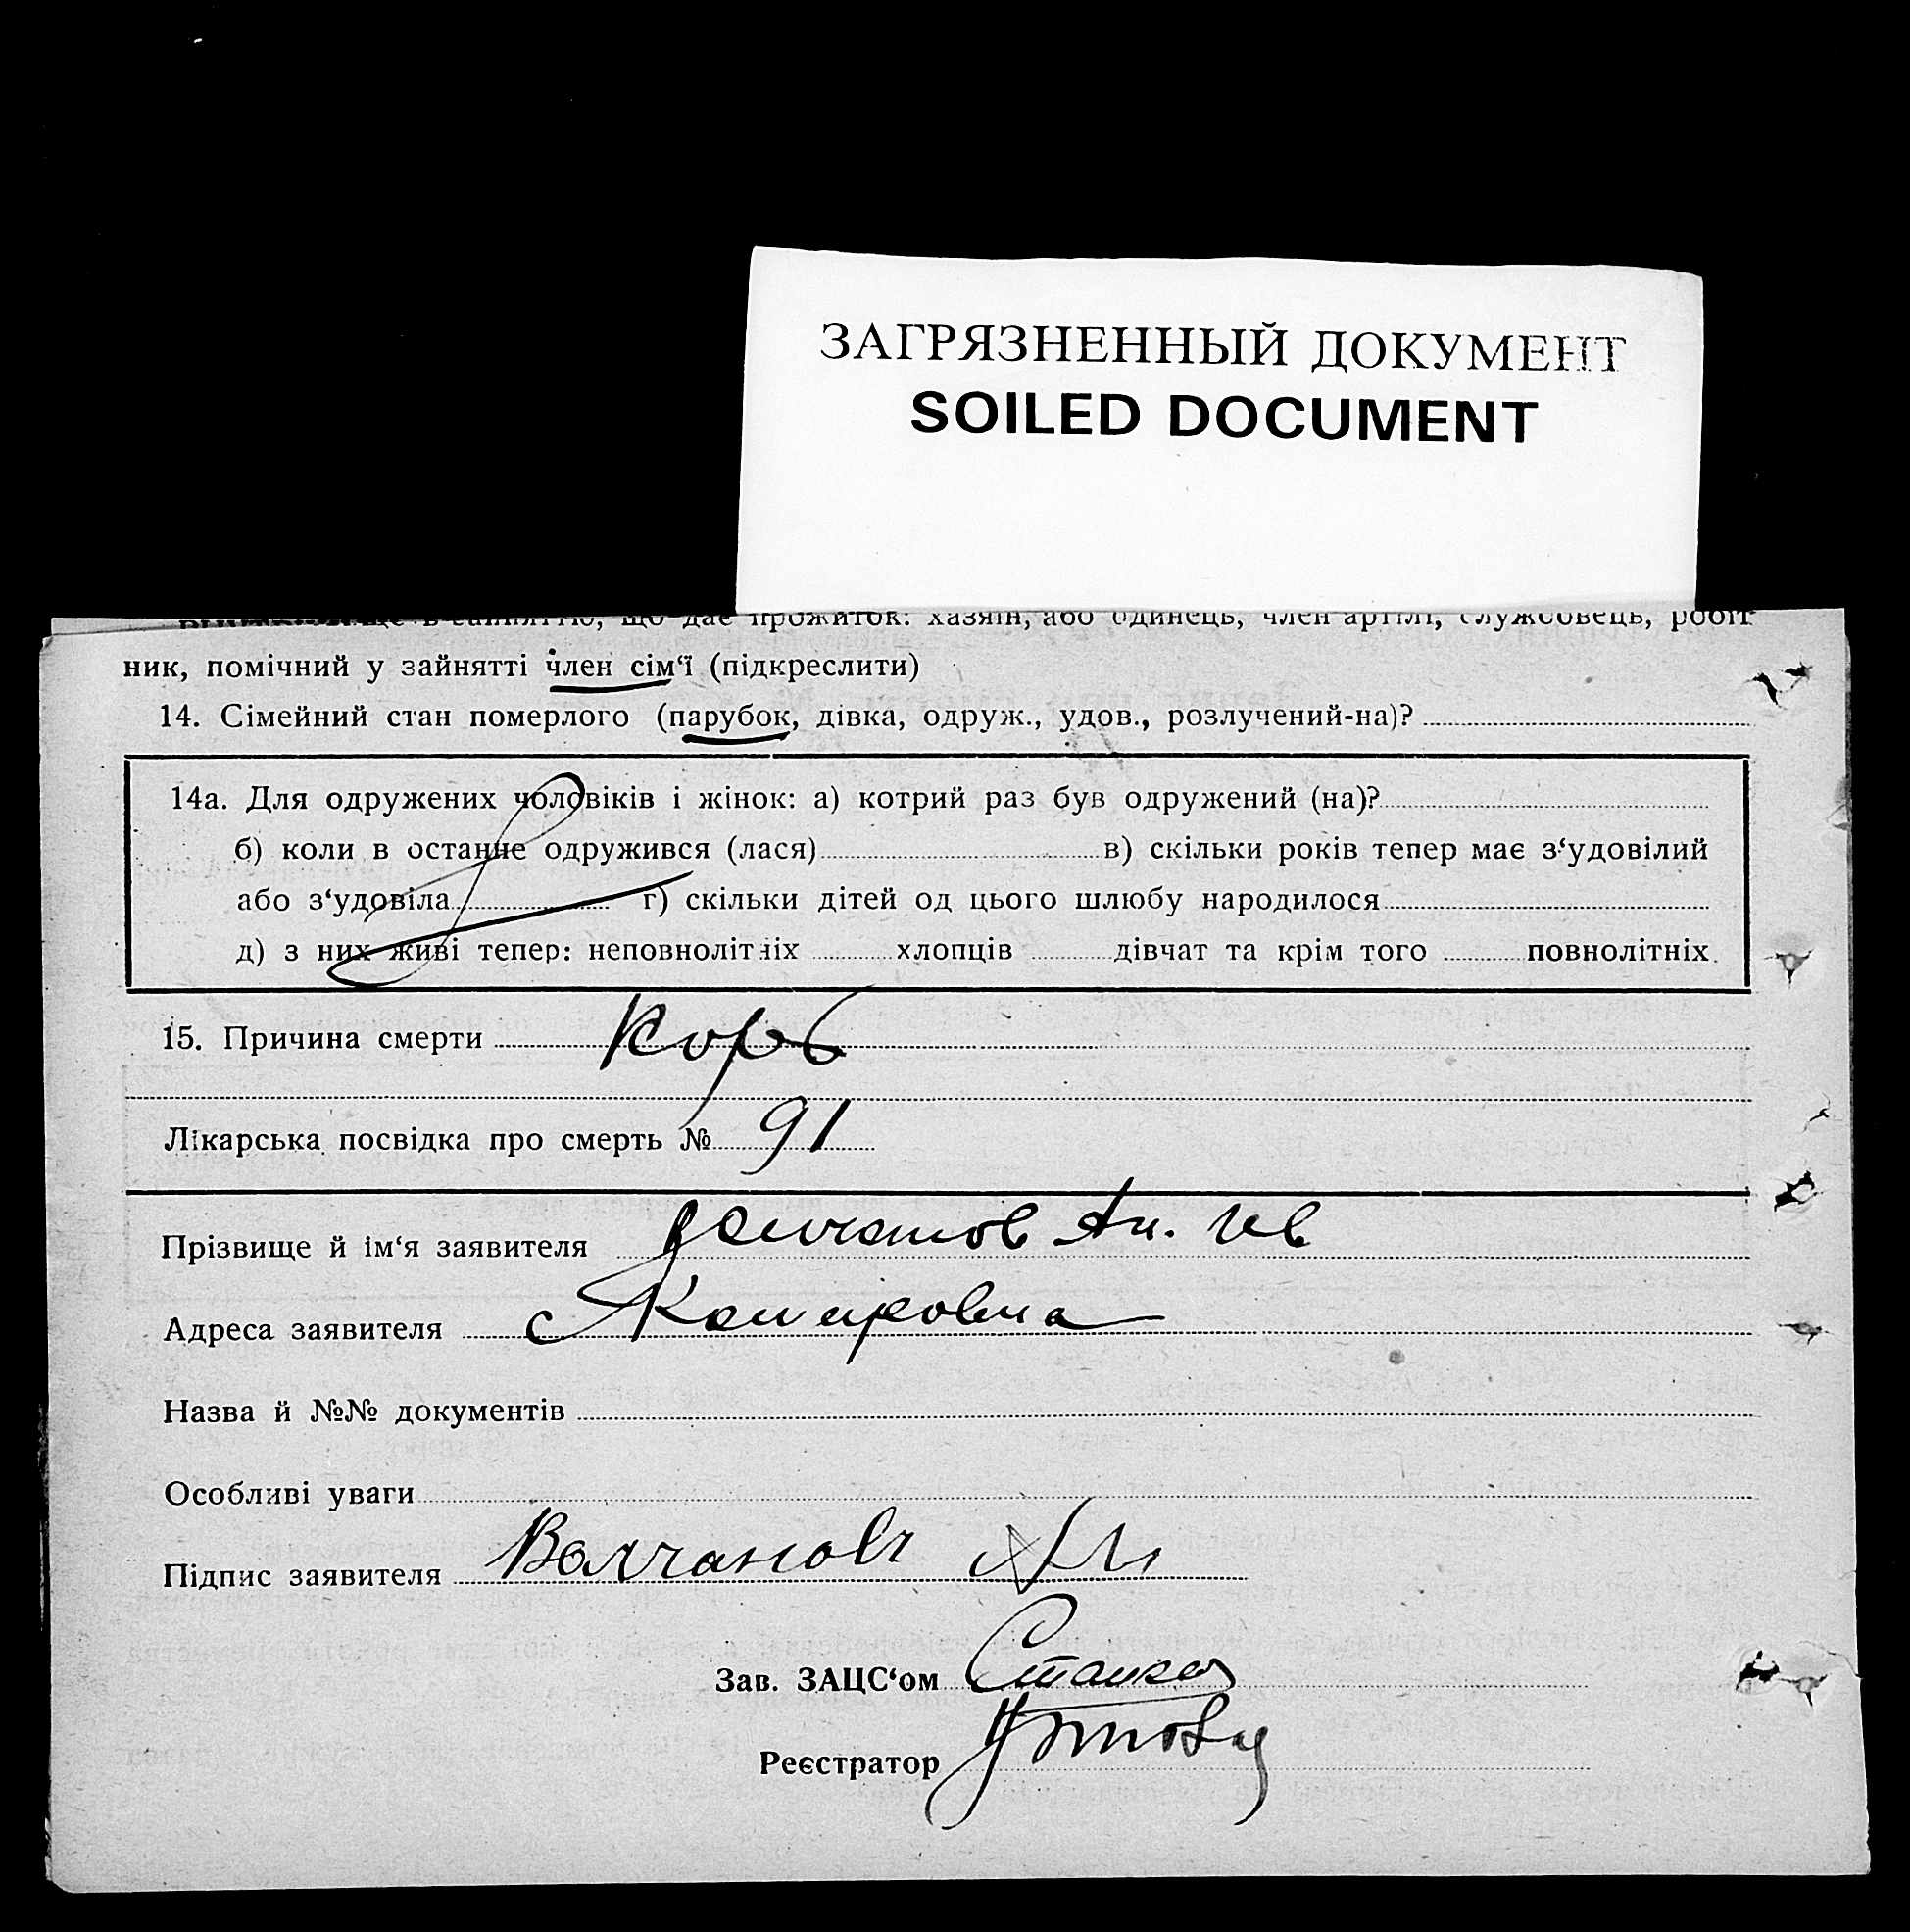 ЗАГРЯЗНЕННЫЙ ДОКУМЕНТ
SOILED DOCUMENT
що дає прожиток: хазяїн, або одинець, член артілі, службовець, робіт-
ник, помічний у зайнятті член сім‘ї (підкреслити)
14. Сімейний стан померлого (парубок, дівка, одруж., удов., розлучений-на)?
14а. Для одружених чоловіків і жінок: а) котрий раз був одружений (на)?
б) коли в останнє одружився (лася) в) скільки років тепер має з‘удовілий
або з‘удовіла г) скільки дітей од цього шлюбу народилося
д) з них живі тепер: неповнолітніх хлопців дівчат та крім того повнолітніх
15. Причина смерти Корь
Лікарська посвідка про смерть № 91
Прізвище й ім‘я заявителя Ан. Ив
Адреса заявителя с
Назва й №№ документів
Особливі уваги
Підпис заявителя Волчановъ
Зав. ЗАЦС‘ом
Реєстратор